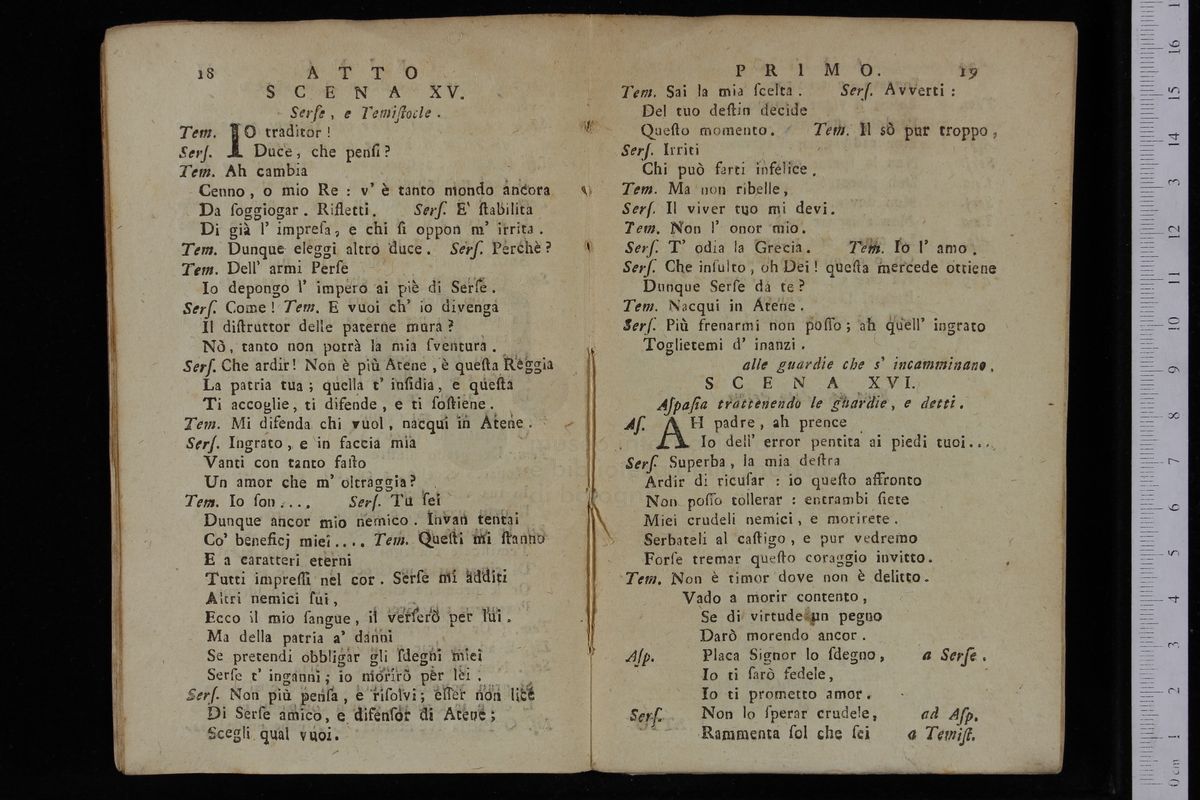 18 ATTO
SCENA XV.
Serſe, e Temiſtocle.
Tem. IO traditor!
Serſ. Duce, che penſi?
Tem. Ah cambia
Cenno, o mio Re: v' è tanto mondo ancora
Da ſoggiogar. Rifletti. Serſ. E' ſtabilita
Di già l' impreſa, e chi ſi oppon m' irrita.
Tem. Dunque eleggi altro duce. Serſ. Perchè?
Tem. Dell' armi Perſe
Io depongo l' impero ai piè di Serſe.
Serſ. Come! Tem. E vuoi ch' io divenga
Il diſtruttor delle paterne mura?
Nò, tanto non potrà la mia ſventura.
Serſ. Che ardir! Non è più Atene, è queſta Reggia
La patria tua; quella t' inſidia, e queſta
Ti accoglie, ti difende, e ti ſoſtiene.
Tem. Mi difenda chi vuol, nacqui in Atene.
Serſ. Ingrato, e in faccia mia
Vanti con tanto faſto
Un amor che m' oltraggia?
Tem. Io ſon.... Serſ. Tu ſei
Dunque ancor mio nemico. Invan tentai
Co' beneficj miei.... Tem. Queſti mi ſtanno
E a caratteri eterni
Tutti impreſſi nel cor. Serſe mi additi
Altri nemici ſui,
Ecco il mio ſangue, il verſerò per lui.
Ma della patria a' danni
Se pretendi obbligar gli ſdegni miei
Serſe t' inganni; io morirò per lei.
Serſ. Non più penſa, e riſolvi; eſſer non lice
Di Serſe amico, e difenſor di Atene;
Scegli qual vuoi.
PRIMO. 19
Tem. Sai la mia ſcelta. Serſ. Avverti:
Del tuo deſtin decide
Queſto momento. Tem. Il sò pur troppo,
Serſ. Irriti
Chi può farti infelice.
Tem. Ma non ribelle,
Serſ. Il viver tuo mi devi.
Tem. Non l' onor mio.
Serſ. T' odia la Grecia. Tem. Io l' amo.
Serſ. Che inſulto, oh Dei! queſta mercede ottiene
Dunque Serſe da te?
Tem. Nacqui in Atene.
Serſ. Più frenarmi non poſſo; ah quell' ingrato
Toglietemi d' inanzi.
alle guardie che s' incamminano.
SCENA XVI.
Aſpaſia trattenendo le guardie, e detti.
Aſ. AH padre, ah prence
Io dell' error pentita ai piedi tuoi...
Serſ. Superba, la mia deſtra
Ardir di ricuſar: io queſto affronto
Non poſſo tollerar: entrambi ſiete
Miei crudeli nemici, e morirete.
Serbateli al caſtigo, e pur vedremo
Forſe tremar queſto coraggio invitto.
Tem. Non è timor dove non è delitto.
Vado a morir contento,
Se di virtude un pegno
Darò morendo ancor.
Aſp. Placa Signor lo ſdegno, a Serſe.
Io ti ſarò fedele,
Io ti prometto amor.
Serſ. Non lo ſperar crudele, ad Aſp.
Rammenta ſol che ſei a Temiſt.
0 cm 1 2 3 4 5 6 7 8 9 10 11 12 13 14 15 16